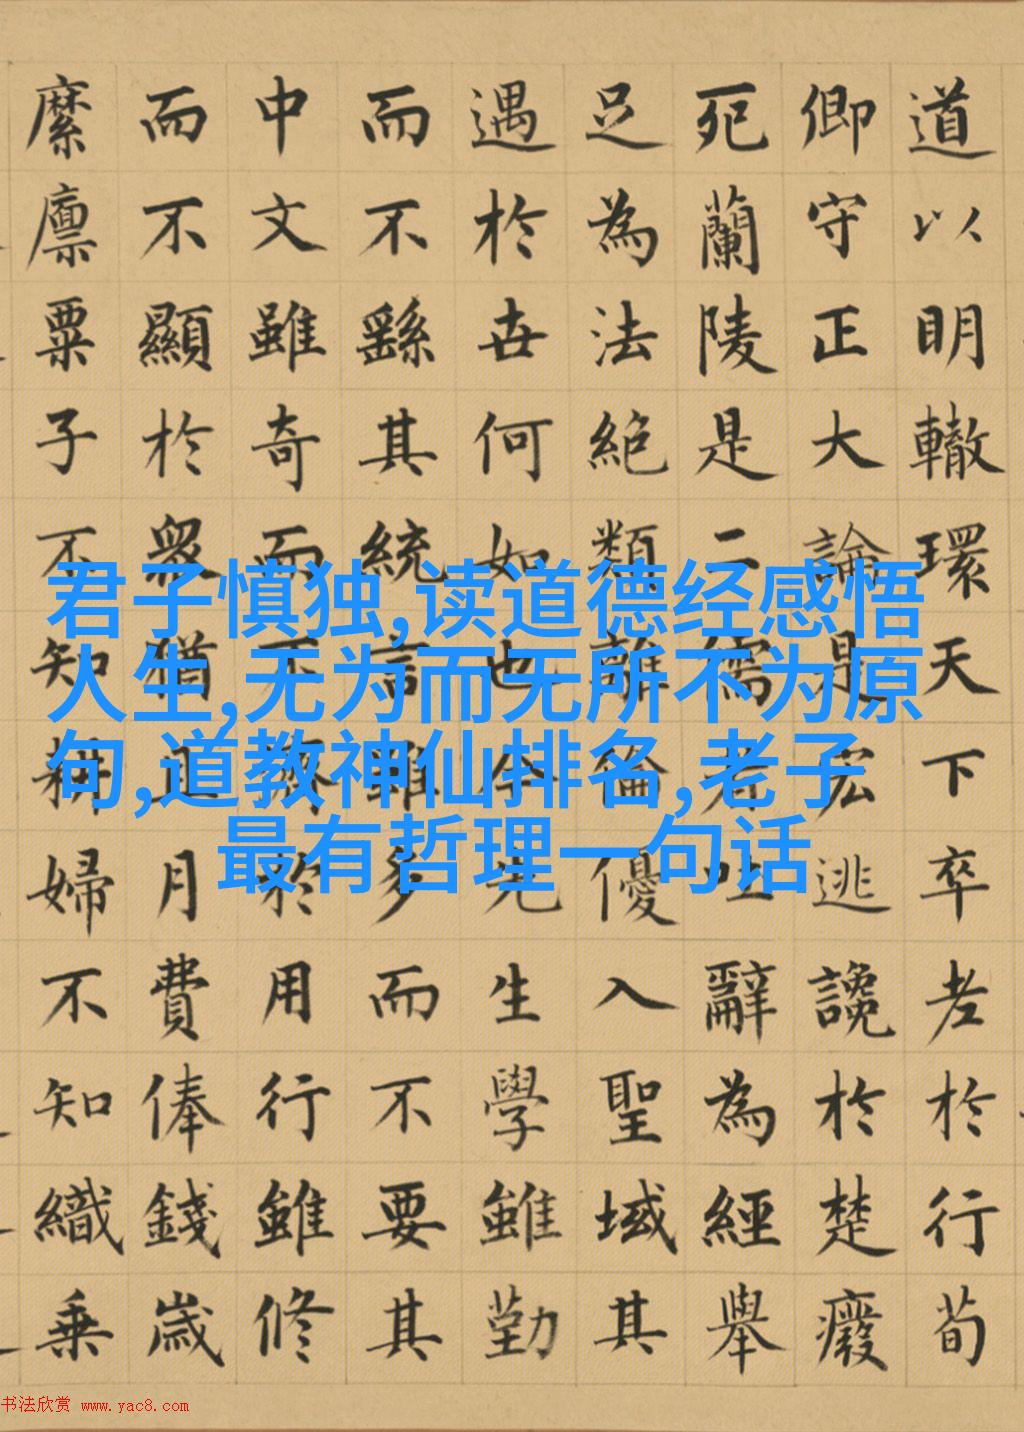 道以明轍環天下卒老於行荀
卿守正大論是宏逃讒於楚癈
死蘭陵是二儒者吐辭為經舉
足為法絕類離倫優入聖域其
遇於世何如也今先生學雖勤
而不繇其統言雖多而不要其
中文雖奇而不濟於用行雖修
而不顯於衆猶且月費俸錢歲
縻廩粟子不知耕婦不知織乗
君子慎独,读道德经感悟
人生,无为而无所不为原
句,道教神仙排名,老子
最有哲理一句话
书法欣赏 www.yac8.com